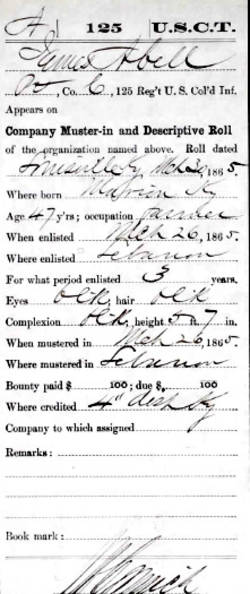 A | 125 | U.S.C.T.
James Abell
Co. C, 125 Reg't U. S. Col'd Inf.
Appears on
Company Muster-in and Descriptive Roll
of the organization named above. Roll dated
Louisville Ky Mch 1865.
Where born Marion Ky
Age 47 y'rs; occupation Farmer
When enlisted Mch 26, 1865.
Where enlisted Lebanon
For what period enlisted 3 years.
Eyes Blk, hair Blk
Complexion Blk, height 5 ft. 7 in.
When mustered in Mch 26, 1865.
Where mustered in Lebanon
Bounty paid $ 100; due $ 100
Where credited 4" Ky
Company to which assigned
Remarks:
Book mark: